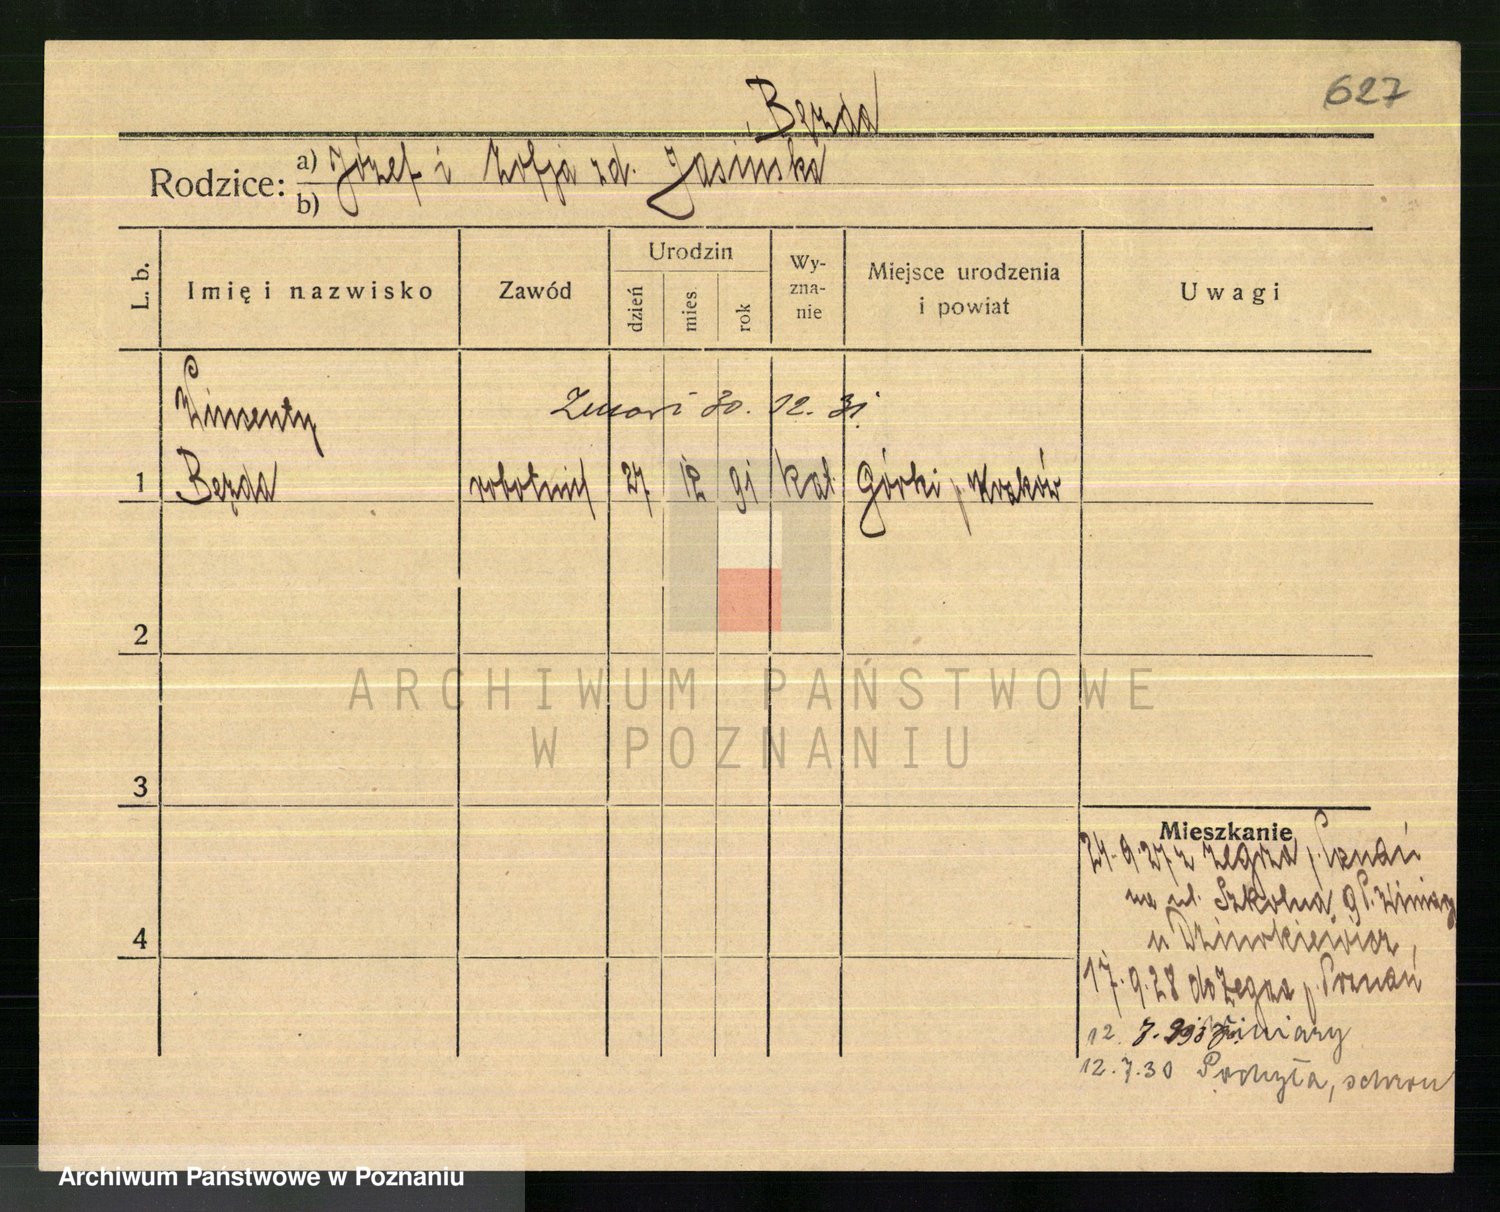 627
Bęzda
Rodzice: a) Józef i Zofja zd. Jasińska
b)
L. b.
Imię i nazwisko
Zawód
Urodzin
dzień
mies
rok
Wy-
zna-
nie
Miejsce urodzenia
i powiat
Uwagi
Zmarł 30. 12. 31
1 robotnik 27 12 91 kat. Górki p. Kraków
2
3
4
Mieszkanie
24.9.27 z Zegrza p. Poznań
na ul. Szkolna 9
17.9.28 do Zegrza p. Poznań
12. 7. Winiary
12.7.30
ARCHIWUM PAŃSTWOWE
W POZNANIU
Archiwum Państwowe w Poznaniu